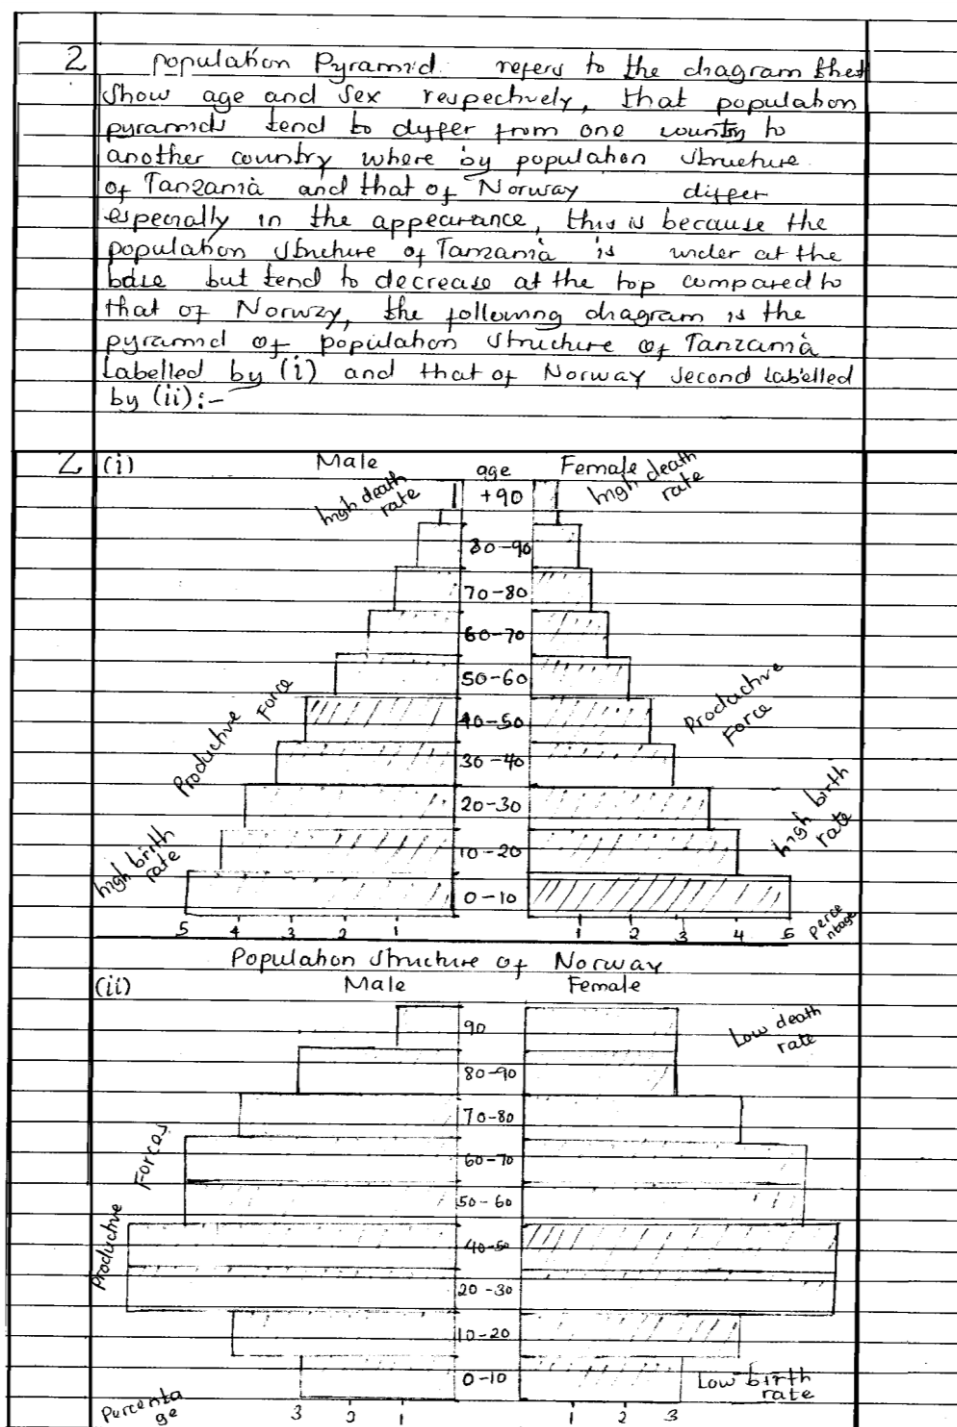 2 population Pyramid. refers to the diagram that
show age and sex respectively, that population
pyramids tend to dyfer from one country to
another country where by population structure
of Tanzania and that of Norway differ
especially in the appearance, this is because the
population structure of Tanzania is wider at the
base but tend to decrease at the top compared to
that of Norway, the following diagram is the
pyramid of population structure of Tanzania
Labelled by (i) and that of Norway second labelled
by (ii):-
2 (i) Male age Female
high death rate +90 high death rate
80-90
70-80
60-70
50-60
Productive Force 40-50 Productive Force
30-40
20-30
high birth rate 10-20 high birth rate
0-10
5 4 3 2 1 1 2 3 4 5 percentage
Population structure of Norway
(ii) Male Female
90 Low death rate
80-90
70-80
Productive Forces 60-70
50-60
40-50
20-30
10-20
0-10 Low birth rate
Percentage 3 2 1 1 2 3